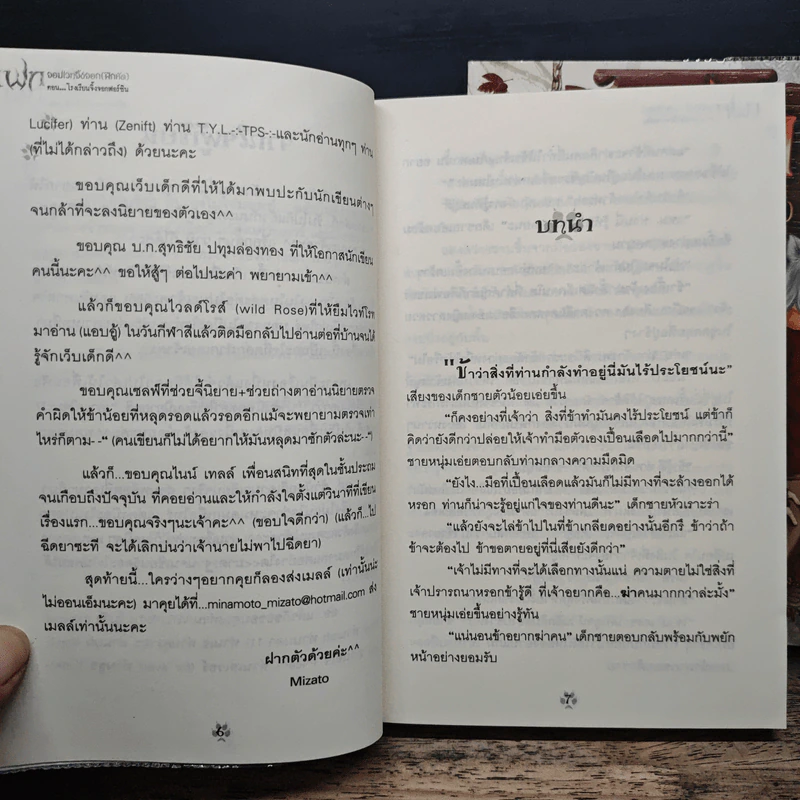 จอมโวหจิ้งจอก(ฝึกหัด)
ตอน...โรงเรียนจิ้งจอกเฟอร์ริน
Lucifer) ท่าน (Zenift) ท่าน T.Y.L.-:-TPS-:-และนักอ่านทุกๆ ท่าน
(ที่ไม่ได้กล่าวถึง) ด้วยนะคะ
ขอบคุณเว็บเด็กดีที่ให้ได้มาพบปะกับนักเขียนต่างๆ
จนกล้าที่จะลงนิยายของตัวเอง^^
ขอบคุณ บ.ก.สุทธิชัย ปทุมล่องทอง ที่ให้โอกาสนักเขียน
คนนี้นะคะ^^ ขอให้สู้ๆ ต่อไปนะค่า พยายามเข้า^^
แล้วก็ขอบคุณไวลด์โรส์ (wild Rose)ที่ให้ยืมไวท์โรท
มาอ่าน (แอบอู้) ในวันกีฬาสีแล้วติดมือกลับไปอ่านต่อที่บ้านจนได้
รู้จักเว็บเด็กดี^^
ขอบคุณเซลฟ์ที่ช่วยจี้นิยาย+ช่วยถ่างตาอ่านนิยายตรวจ
คำผิดให้ข้าน้อยที่หลุดรอดแล้วรอดอีกแม้จะพยายามตรวจเท่า
ไหร่ก็ตาม- -“ (คนเขียนก็ไม่ได้อยากให้มันหลุดมาซักตัวล่ะนะ- -“)
แล้วก็...ขอบคุณไนน์ เทลล์ เพื่อนสนิทที่สุดในชั้นประถม
จนเกือบถึงปัจจุบัน ที่คอยอ่านและให้กำลังใจตั้งแต่วินาทีที่เขียน
เรื่องแรก...ขอบคุณจริงๆนะเจ้าคะ^^ (ขอบใจดีกว่า) (แล้วก็...ไป
ฉีดยาซะที จะได้เลิกบ่นว่าเจ้านายไม่พาไปฉีดยา)
สุดท้ายนี้...ใครว่างๆอยากคุยก็ลองส่งเมลล์ (เท่านั้นน่ะ
ไม่ออนเอ็มนะคะ) มาคุยได้ที่...minamoto_mizato@hotmail.com ส่ง
เมลล์เท่านั้นนะคะ
ฝากตัวด้วยค่ะ^^
Mizato
6
บทนำ
“ข้าว่าสิ่งที่ท่านกำลังทำอยู่นี่มันไร้ประโยชน์นะ”
เสียงของเด็กชายตัวน้อยเอ่ยขึ้น
“ก็คงอย่างที่เจ้าว่า สิ่งที่ข้าทำมันคงไร้ประโยชน์ แต่ข้าก็
คิดว่ายังดีกว่าปล่อยให้เจ้าทำมือตัวเองเปื้อนเลือดไปมากกว่านี้”
ชายหนุ่มเอ่ยตอบกลับท่ามกลางความมืดมิด
“ยังไง...มือที่เปื้อนเลือดแล้วมันก็ไม่มีทางที่จะล้างออกได้
หรอก ท่านก็น่าจะรู้อยู่แก่ใจของท่านดีนะ” เด็กชายหัวเราะร่า
“แล้วยังจะไล่ข้าไปในที่ข้าเกลียดอย่างนั้นอีกรึ ข้าว่าถ้า
ข้าจะต้องไป ข้าขอตายอยู่ที่นี่เสียยังดีกว่า”
“เจ้าไม่มีทางที่จะได้เลือกทางนั้นแน่ ความตายไม่ใช่สิ่งที่
เจ้าปรารถนาหรอกข้ารู้ดี ที่เจ้าอยากคือ...ฆ่าคนมากกว่าล่ะมั้ง”
ชายหนุ่มเอ่ยขึ้นอย่างรู้ทัน
“แน่นอนข้าอยากฆ่าคน” เด็กชายตอบกลับพร้อมกับพยัก
หน้าอย่างยอมรับ
7